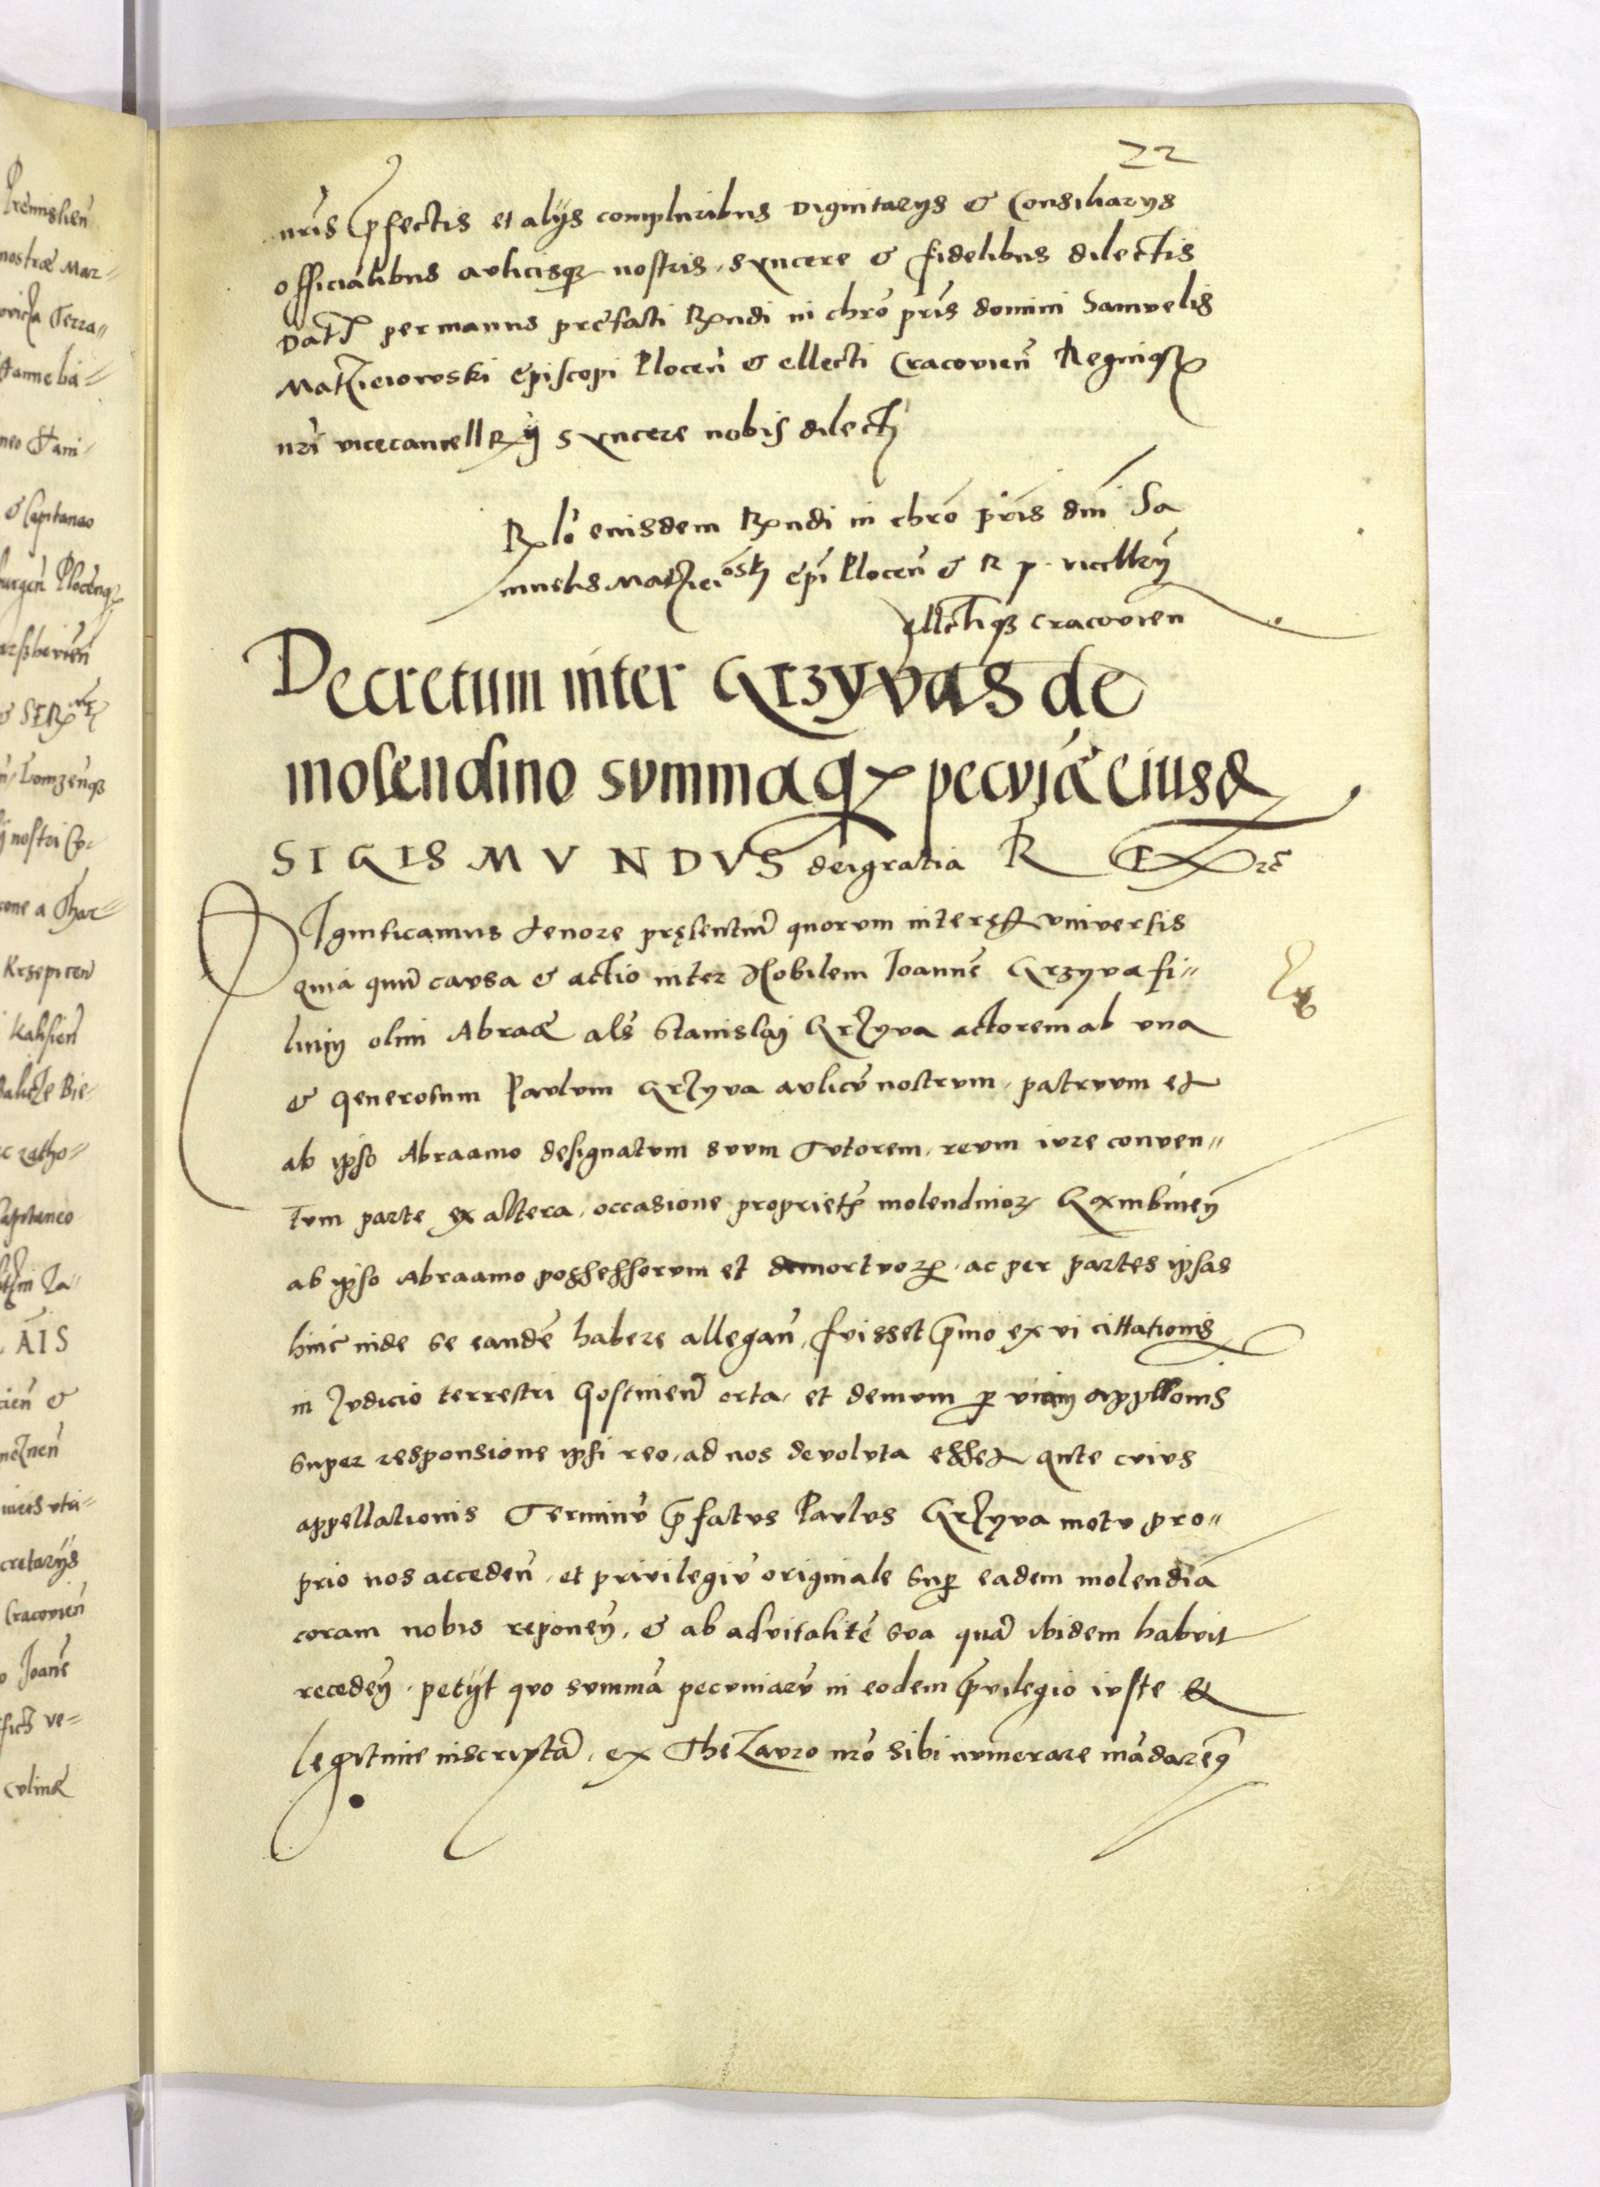 22
nr̄is p̄fectis et alijs compluribus Dignitarijs & Consiliarijs
officialibus aulicisq3 nostris, syncere & fidelibus dilectis
Datt per manus prefati Rx̄ndi in chr̄o pr̄is domini Samuelis
Maczieiowski Episcopi Plocen̄ & ellecti Cracovien̄ Regniq3
nr̄i vicecancellRij syncere nobis dilecti
Rx lo eiusdem Rx̄ndi in chr̄o pr̄is dn̄i Sa
muelis Maczieioski Ep̄i Plocen̄ & R p. vicllrij
ellctiq3 Cracovien
Decretum inter Grzyvas de
molendino summaq3 pecuīæ eiusd
SIGISMVNDVS dei gratia REX zc̄
Significamus tenore pręsentiū quorum interest vniversis
quia quū causa & actio inter Nobilem Ioannē Grzyva fi-
lium olim Abraæ als̄ Stanislai Grzyva actorem ab vna
& generosum Paulum Grzyva aulicū nostrum, patruum et
ab ipso Abraamo designatum suum Tutorem, reum iure conven-
tum parte ex altera, occasione propriet̄ molendinor
ab ipso Abraamo possessorum et demortuor, ac per partes ipsas
hinc inde se eandē habere allegan̄, fuisset p̄mo ex vi cittationis
in Iudicio terrestri Gostinen̄ orta, et demum p viam appllonis
super responsione ipsi reo, ad nos devoluta esset ante cuius
appellationis Terminū p̄fatus Paulus Grzyva motu pro-
prio nos acceden̄, et privilegiū originale sup eadem molendīa
coram nobis reponen̄, & ab advitalitē sua quā ibidem habuit
receden̄, petijt quo summā pecuniarū in eodem p̄vilegio iuste et
legitime inscriptā, ex Thezauro nr̄o sibi numerare mādarem9